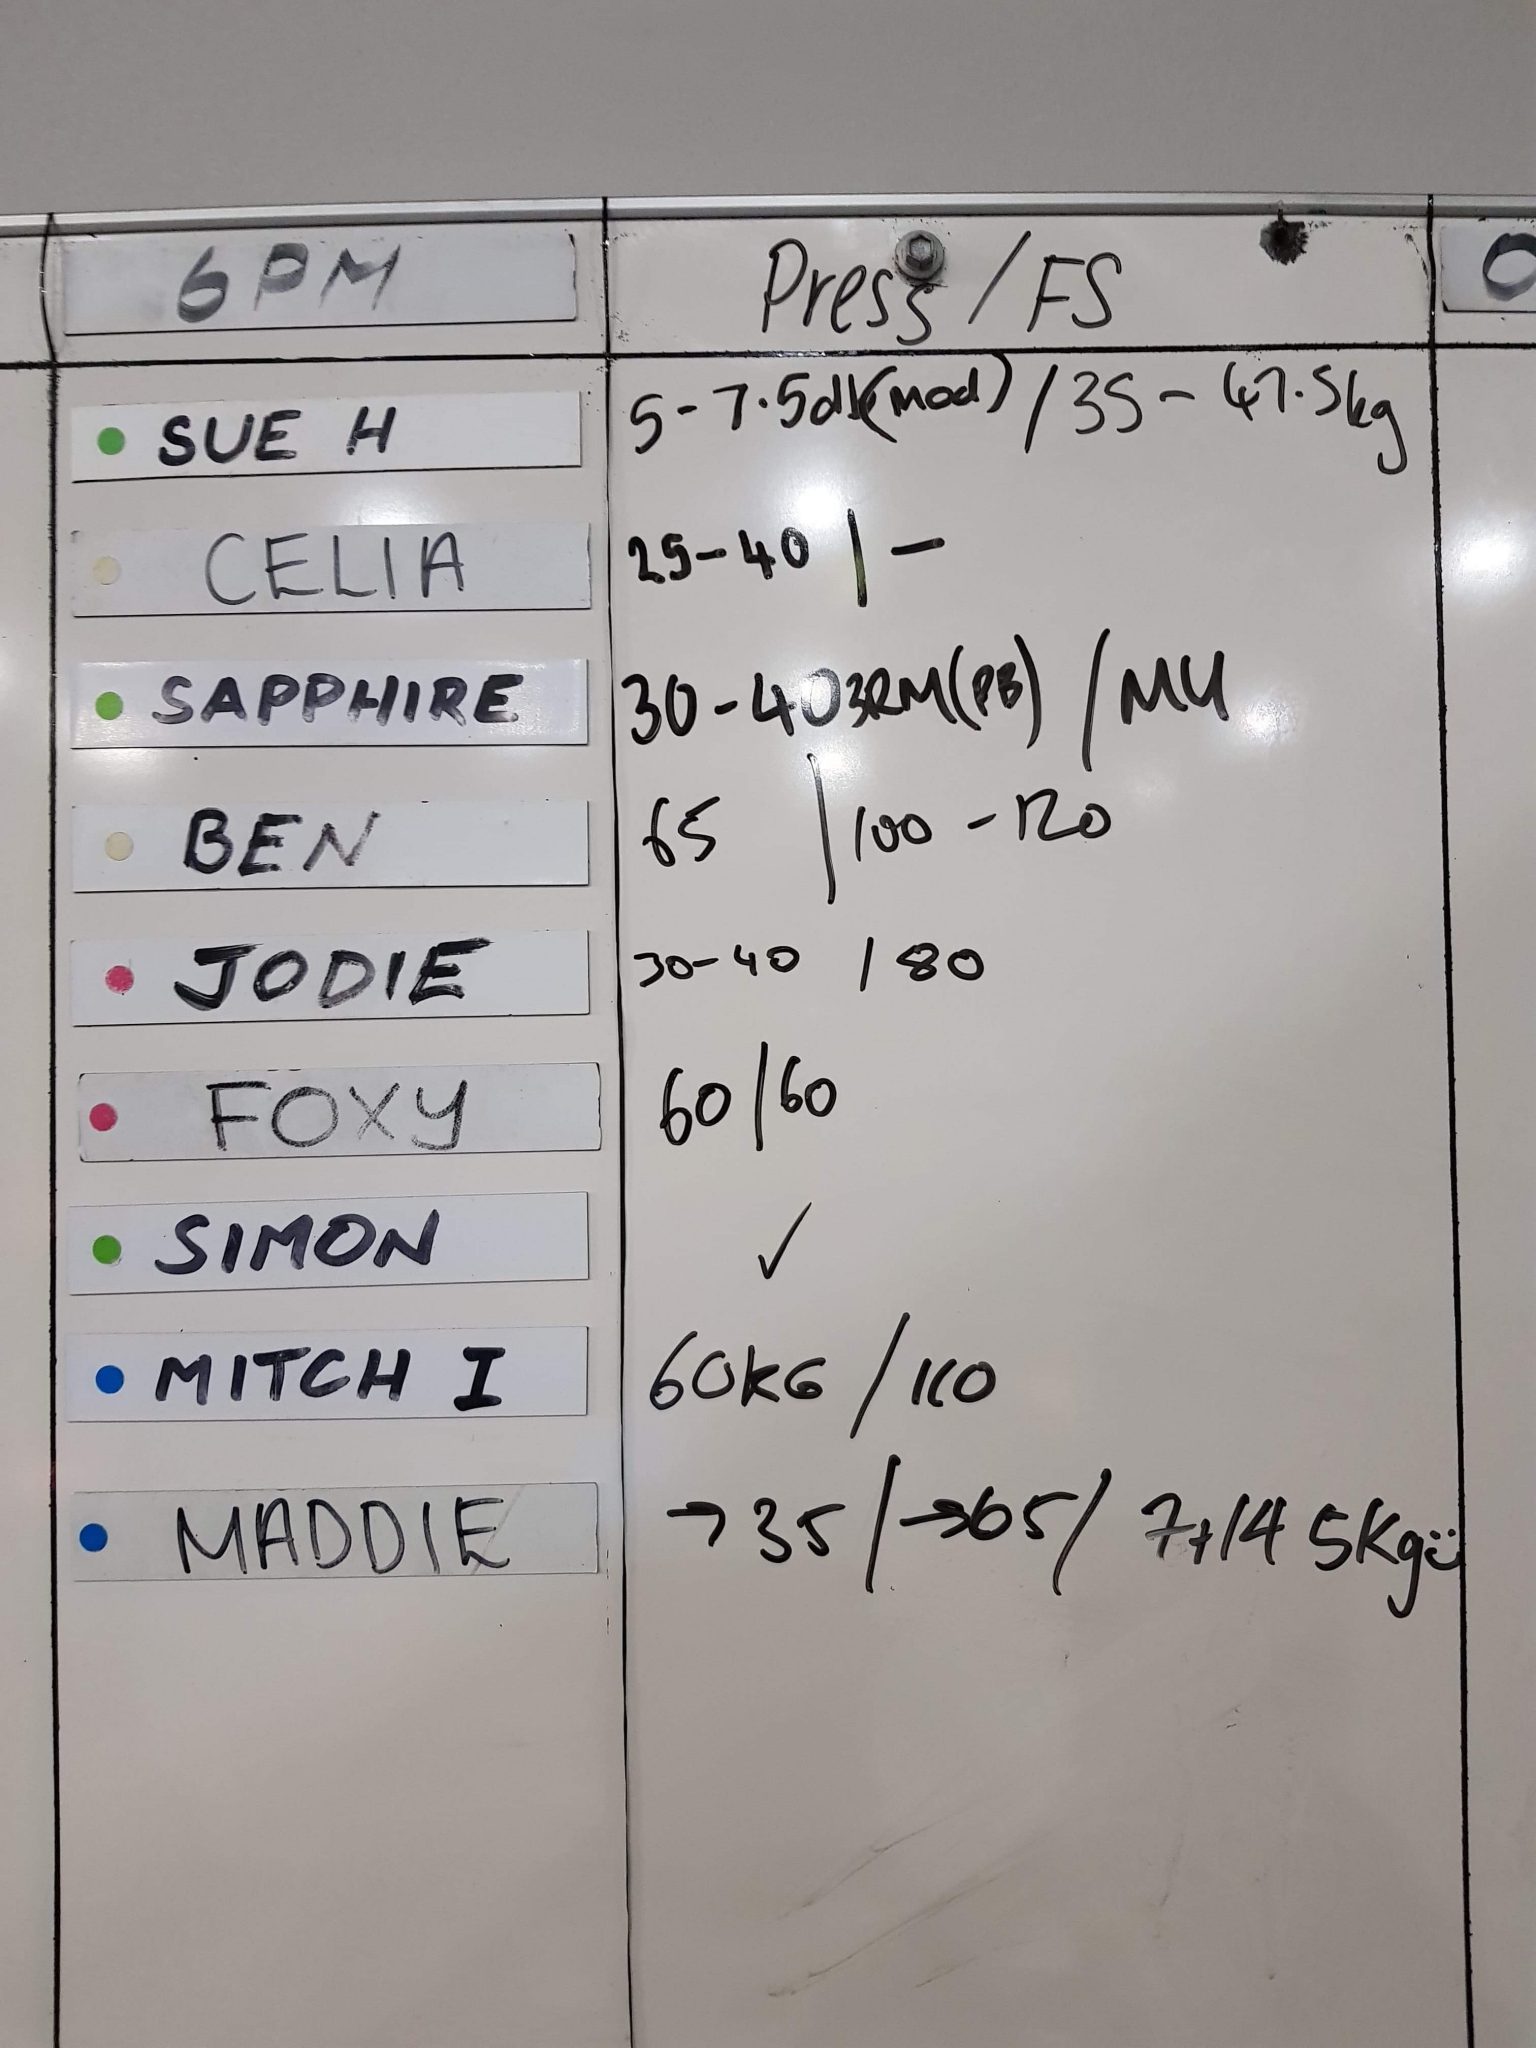 6PM Press/FS O
SUE H 5-7.5db(mod) / 35 - 47.5kg
CELIA 25-40 | -
SAPPHIRE 30-40 3RM(PB) / MU
BEN 65 | 100 - 120
JODIE 30-40 / 80
FOXY 60/60
SIMON ✓
MITCH I 60KG / 110
MADDIE →35 / →65 / 7+14 5Kg